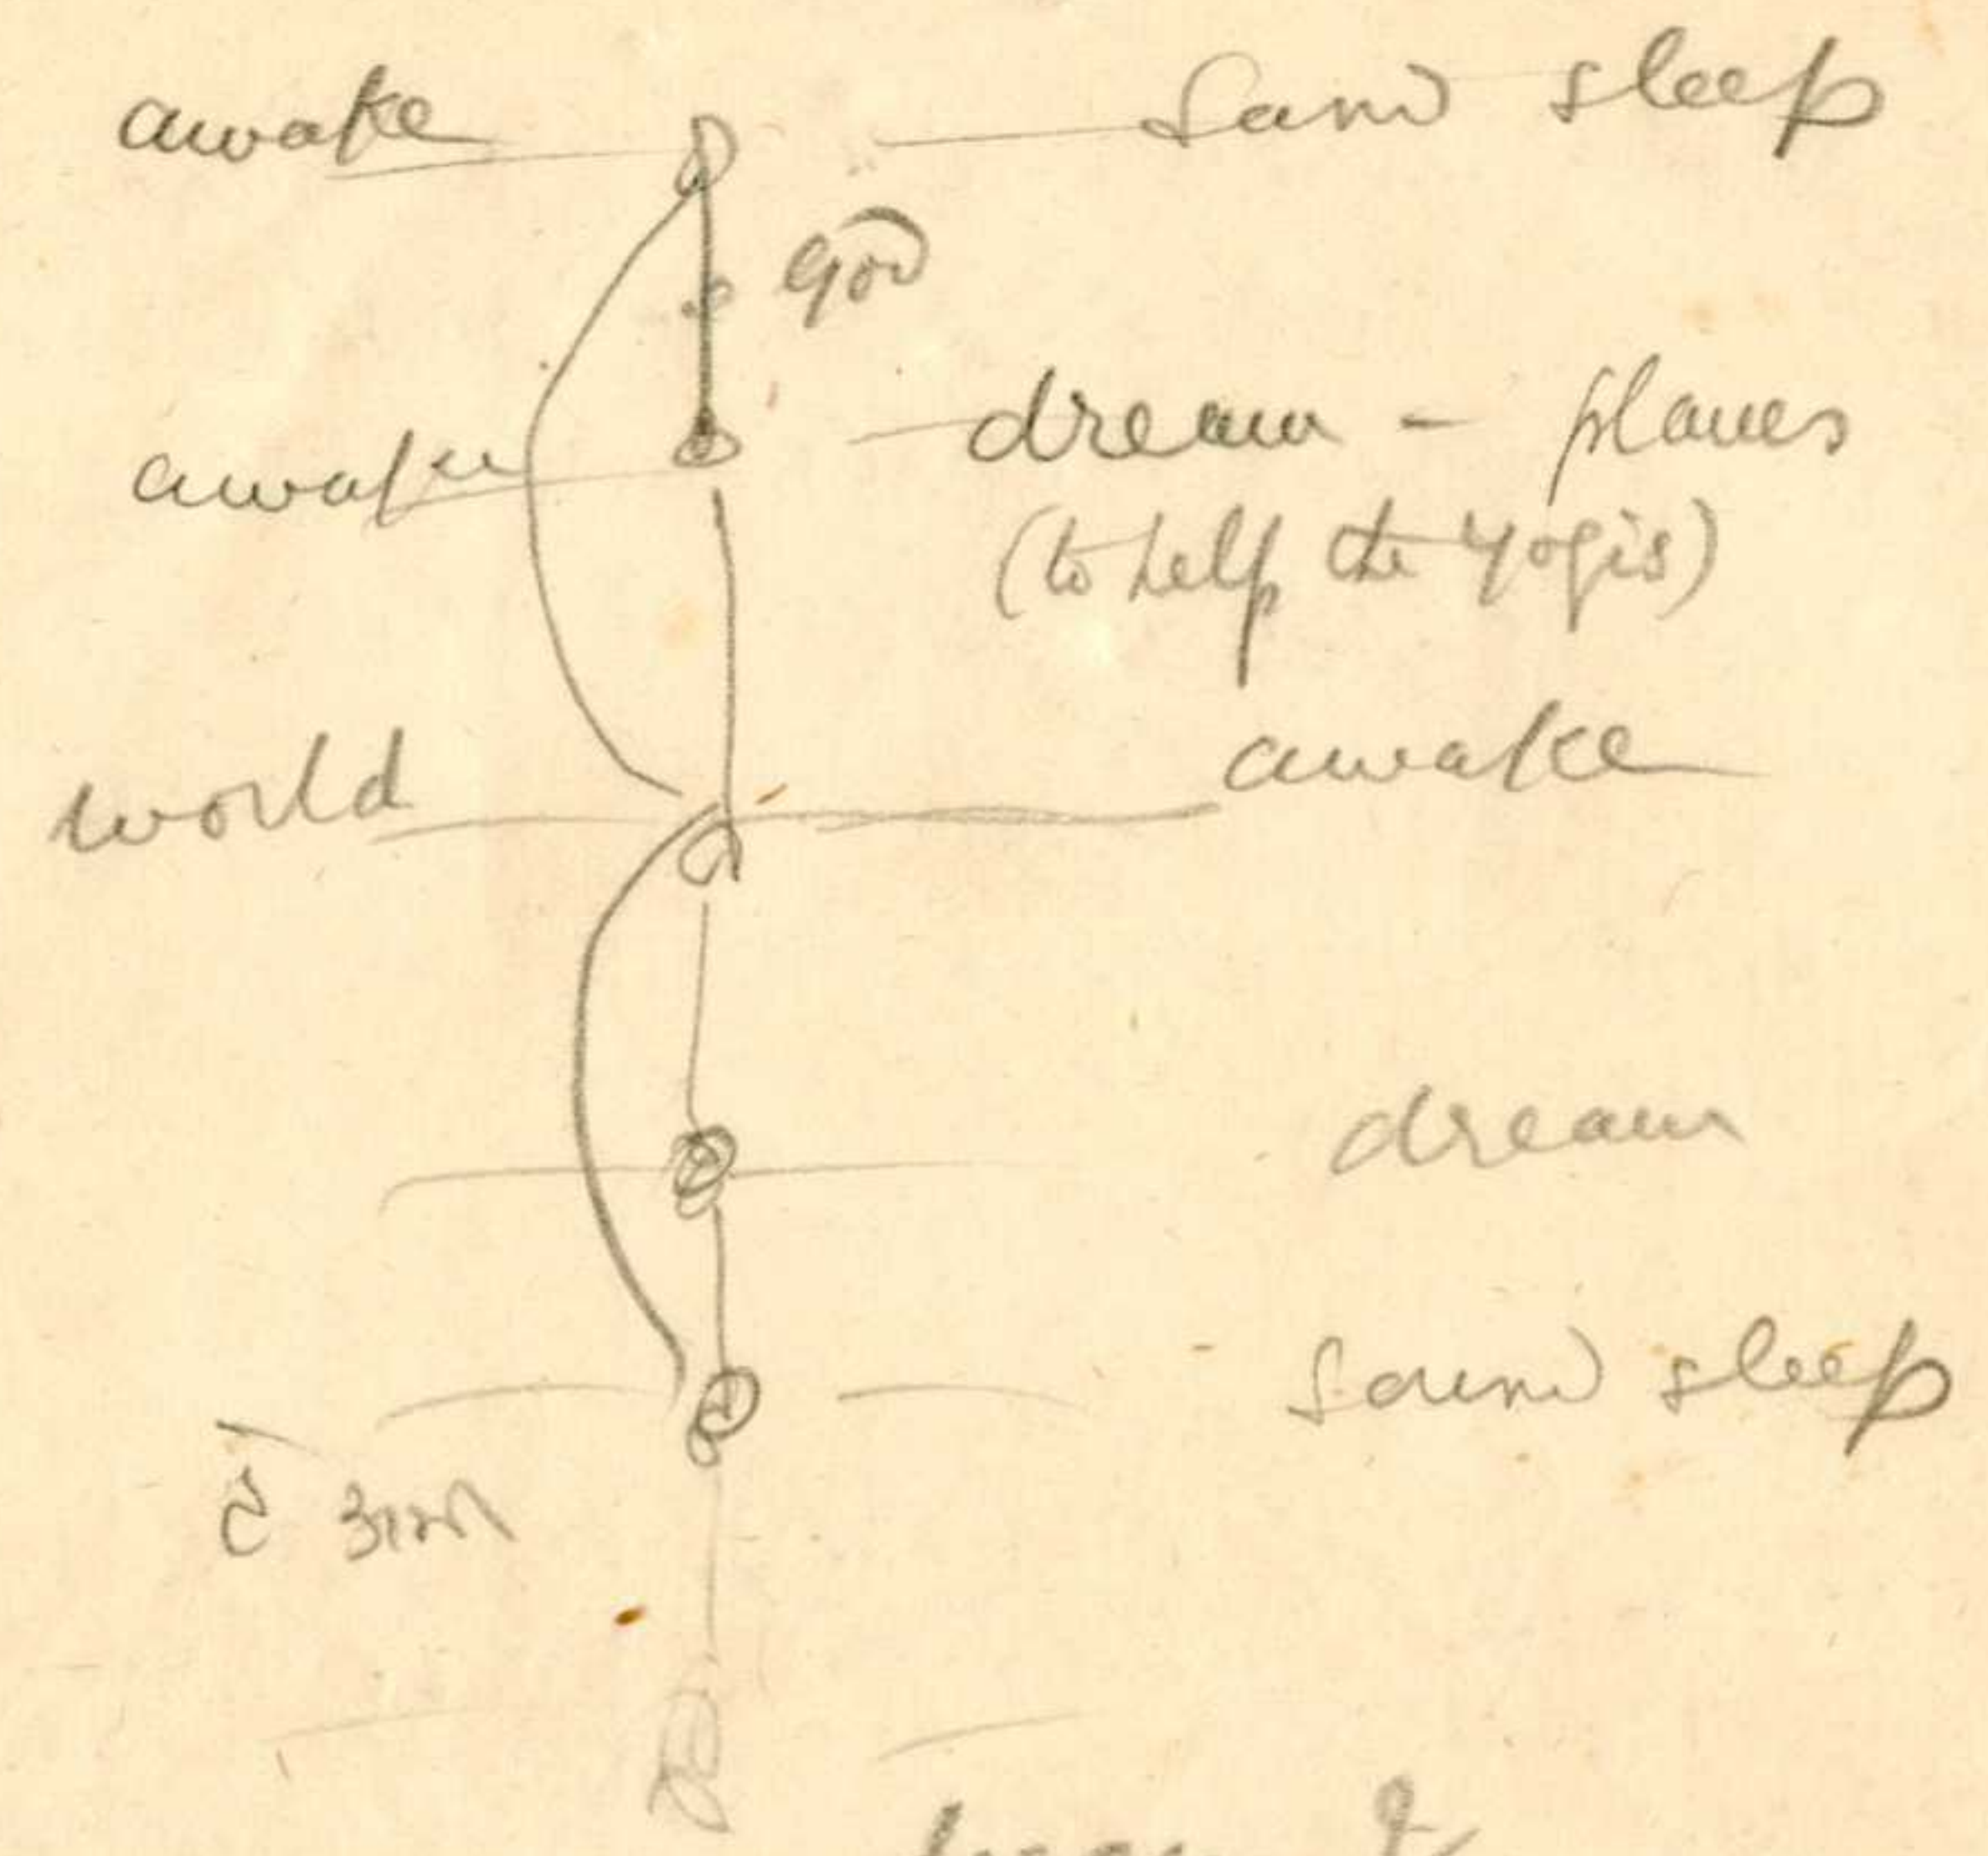 awake sound sleep
god
awake dream - planes
(to help the yogis)
world awake
dream
sound sleep